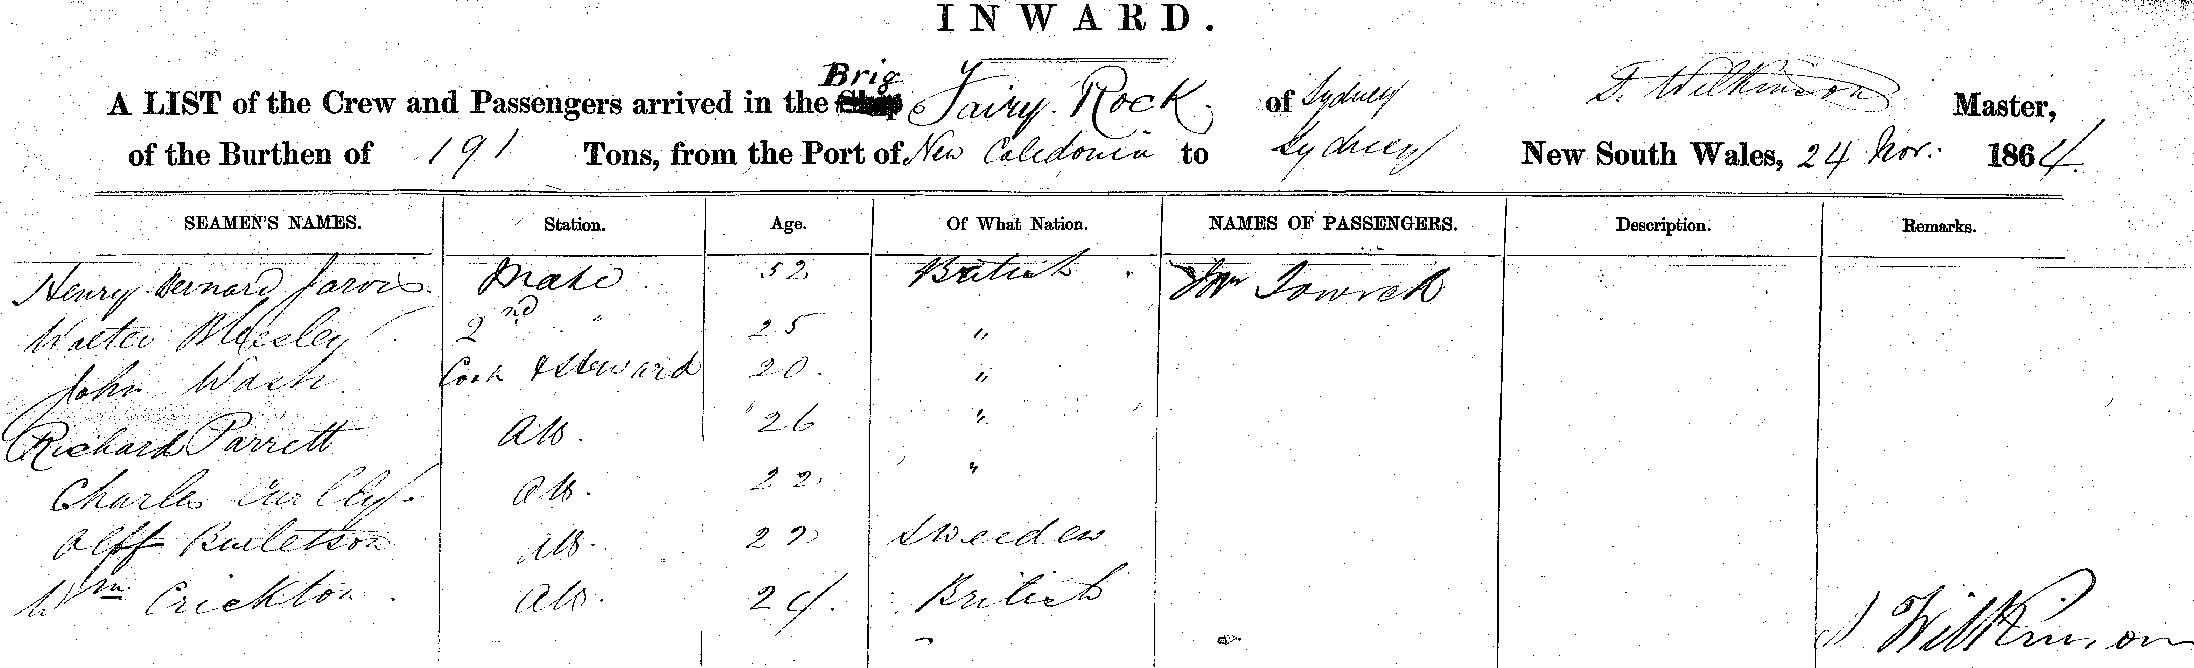 INWARD.
A LIST of the Crew and Passengers arrived in the Brig Fairy Rock of Sydney Wilkinson Master,
of the Burthen of 191 Tons, from the Port of New Caledonia to Sydney New South Wales, 24 Nov. 1864.
SEAMEN'S NAMES. Station. Age. Of What Nation. NAMES OF PASSENGERS. Description. Remarks.
Henry Bernard Jarvis Mate 52 British
Walter 2nd " 25 "
John Wash Cook & Steward 20 "
Richard Parrett AB. 26 "
Charles AB. 22 "
AB. 22 Sweeden
Wm Crickton AB. 24 British
Wilkinson